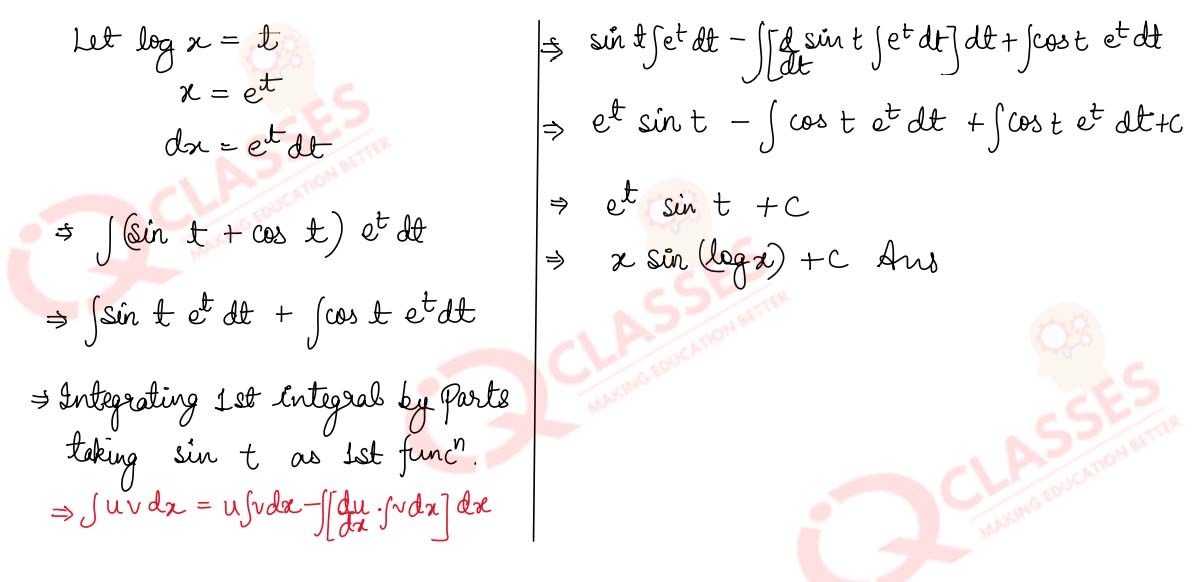 Let log x = t
x = e^t
dx = e^t dt
⇒ ∫(sin t + cos t) e^t dt
⇒ ∫sin t e^t dt + ∫cos t e^t dt
⇒ Integrating 1st integral by Parts
taking sin t as 1st func^n.
⇒ ∫uvdx = u∫vdx-∫[du/dx . ∫vdx] dx
⇒ sin t∫e^t dt - ∫[d/dt sin t ∫e^t dt] dt + ∫cos t e^t dt
⇒ e^t sin t - ∫ cos t e^t dt + ∫cos t e^t dt+c
⇒ e^t sin t + C
⇒ x sin (log x) + c Ans
IQ CLASSES
MAKING EDUCATION BETTER
IQ CLASSES
MAKING EDUCATION BETTER
IQ CLASSES
MAKING EDUCATION BETTER